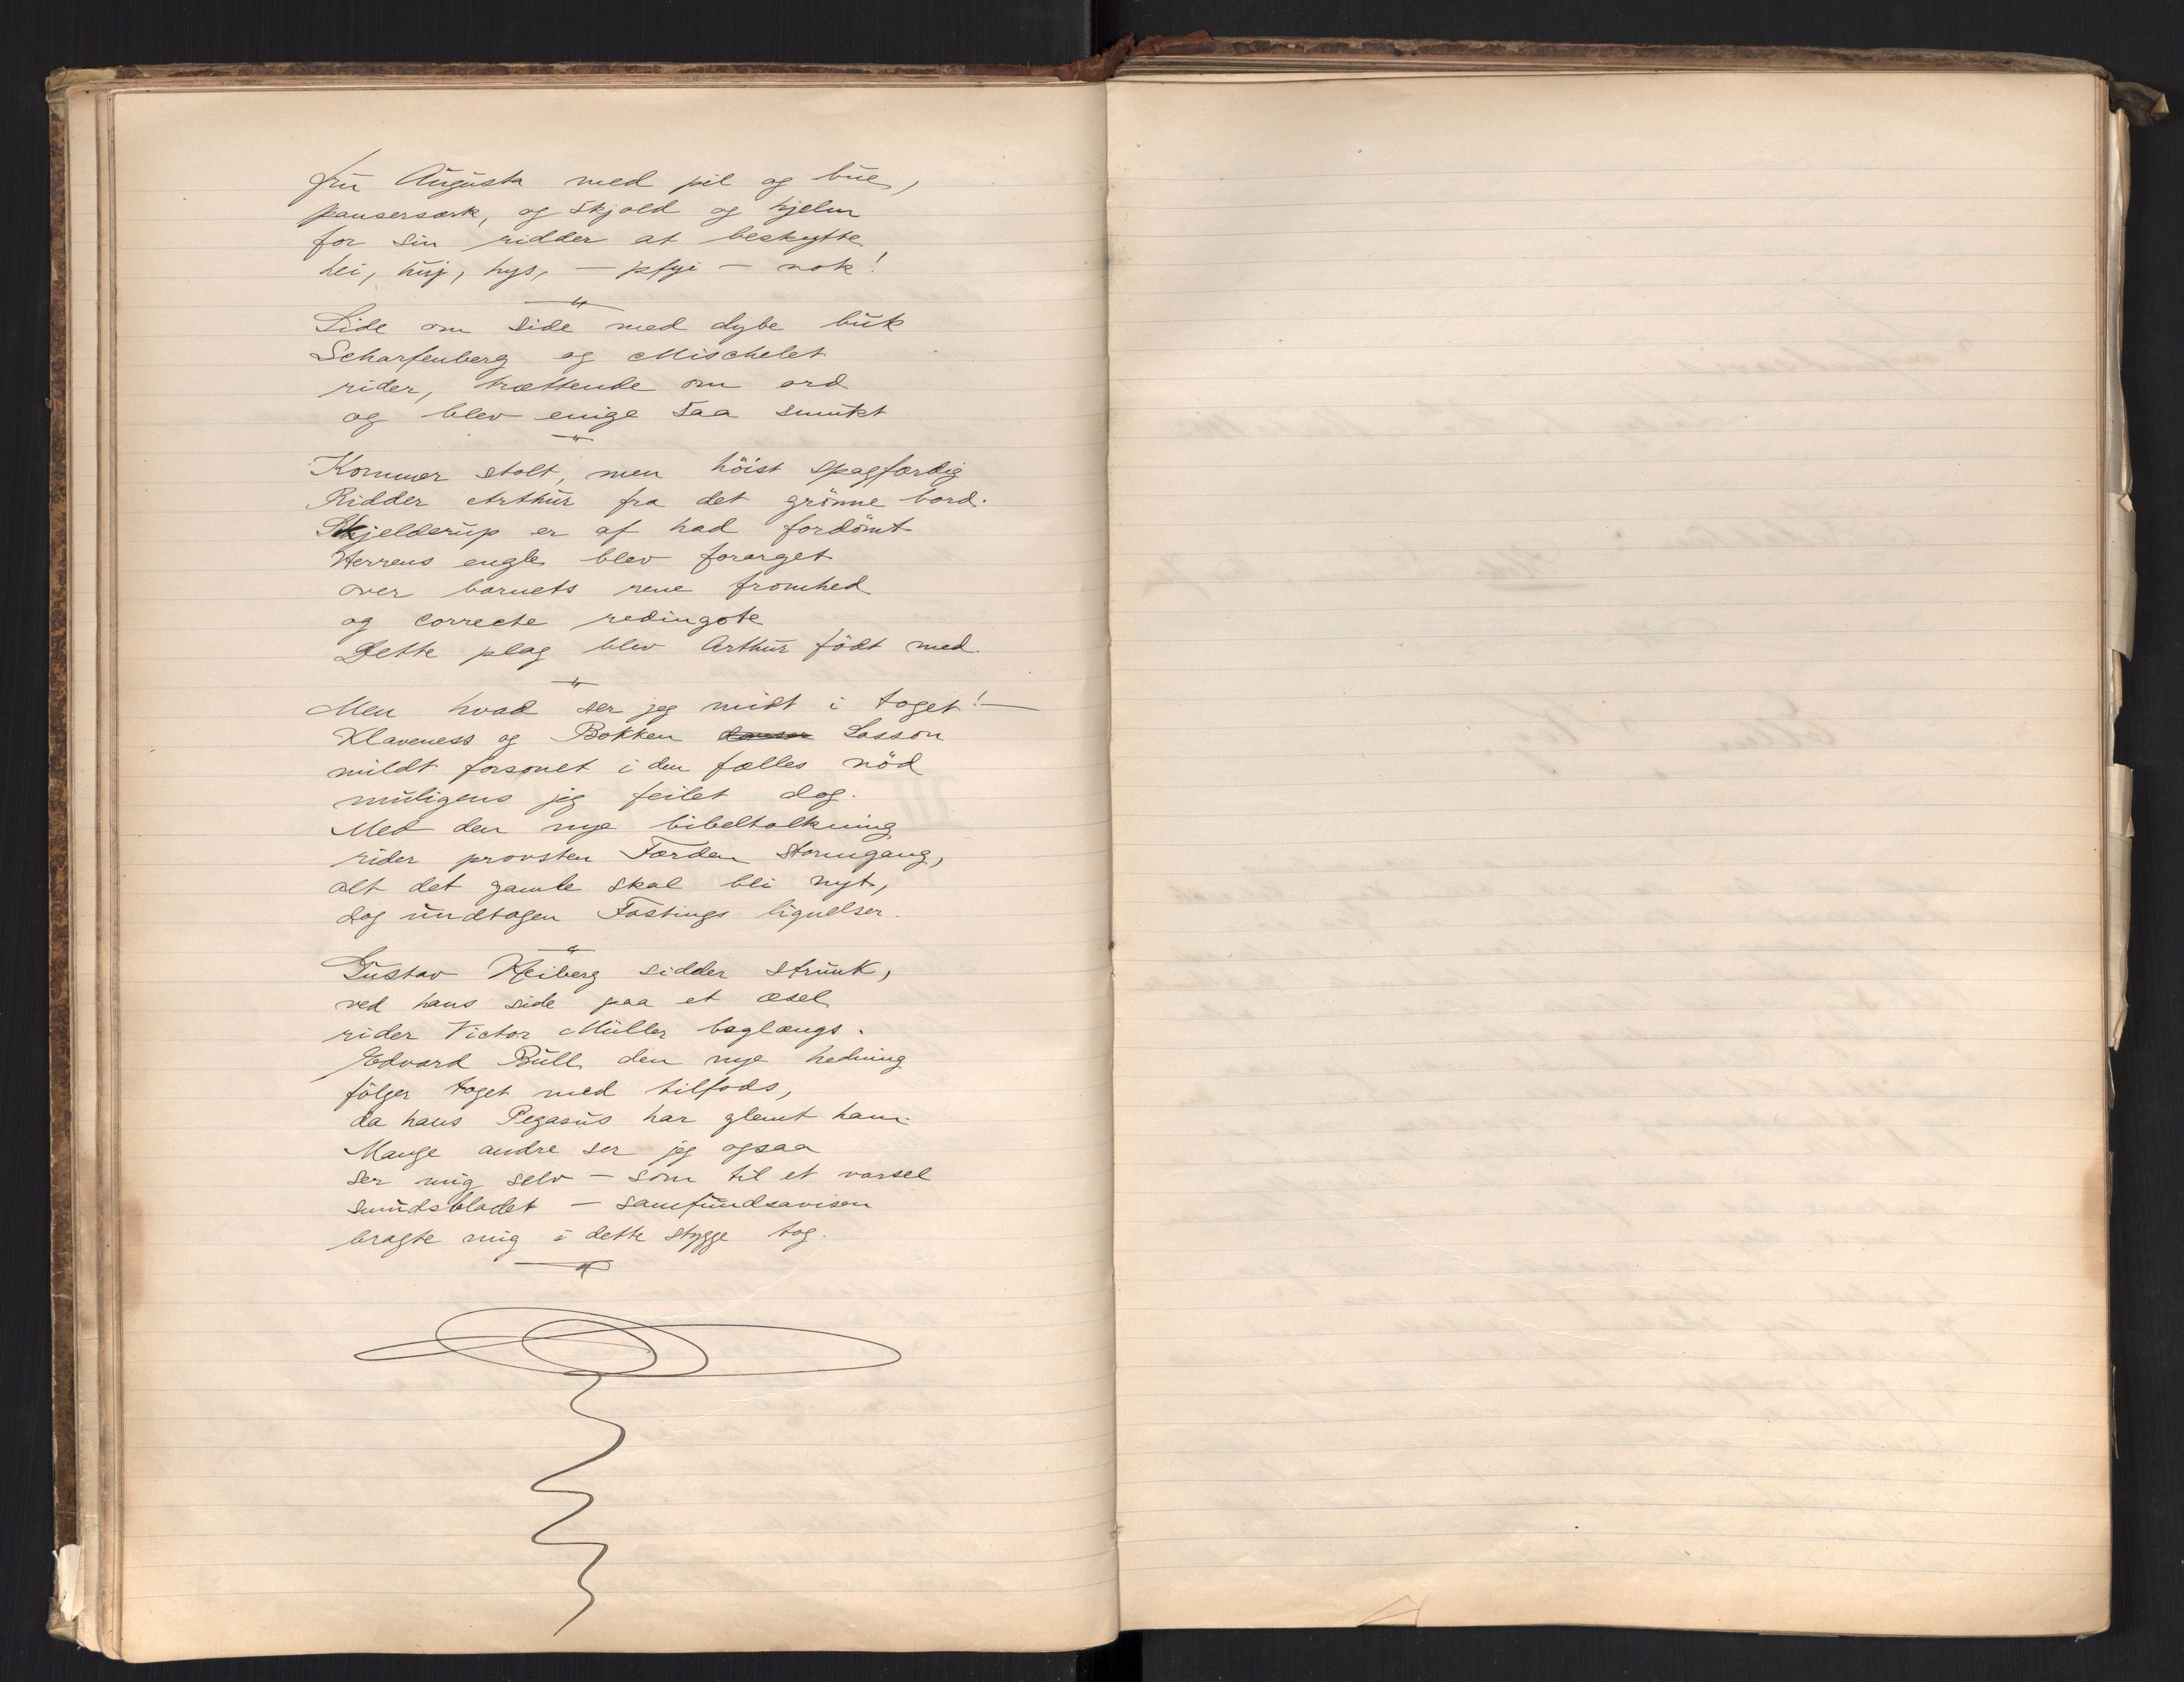 fru Augusta med pil og bue,
pansersærk, og skjold og hjelm
for sin ridder at beskytte
hei, huj, hys, — pfyi — nok!
Side om side med dybe buk
Scharfenberg og Mischelet
rider, trættende om ord
og blev enige saa smukt
Kommer stolt, men höist spagfærdig
Ridder Arthur fra det grönne bord.
Skjelderup er af had fordömt
Herrens engle blev forarget
over barnets rene fromhed
og correcte redingote
Dette plag blev Arthur födt med.
Men hvad ser jeg midt i toget! —
Klaveness og Bokken danser Lasson
mildt forsonet i den fælles nöd
muligens jeg feilet dog.
Med den nye bibeltolkning
rider provsten Færden stormgang,
alt det gamle skal bli nyt,
dog undtagen Fastings lignelser.
Gustav Heiberg sidder strunk,
ved hans side paa et æsel
rider Victor Müller baglængs.
Edvard Bull den nye hedning
fölger toget med tilfods,
da hans Pegasus har glemt ham.
Mange andre ser jeg ogsaa
ser mig selv — som til et varsel
smudsbladet — samfundsavisen
bragte mig i dette stygge tog.